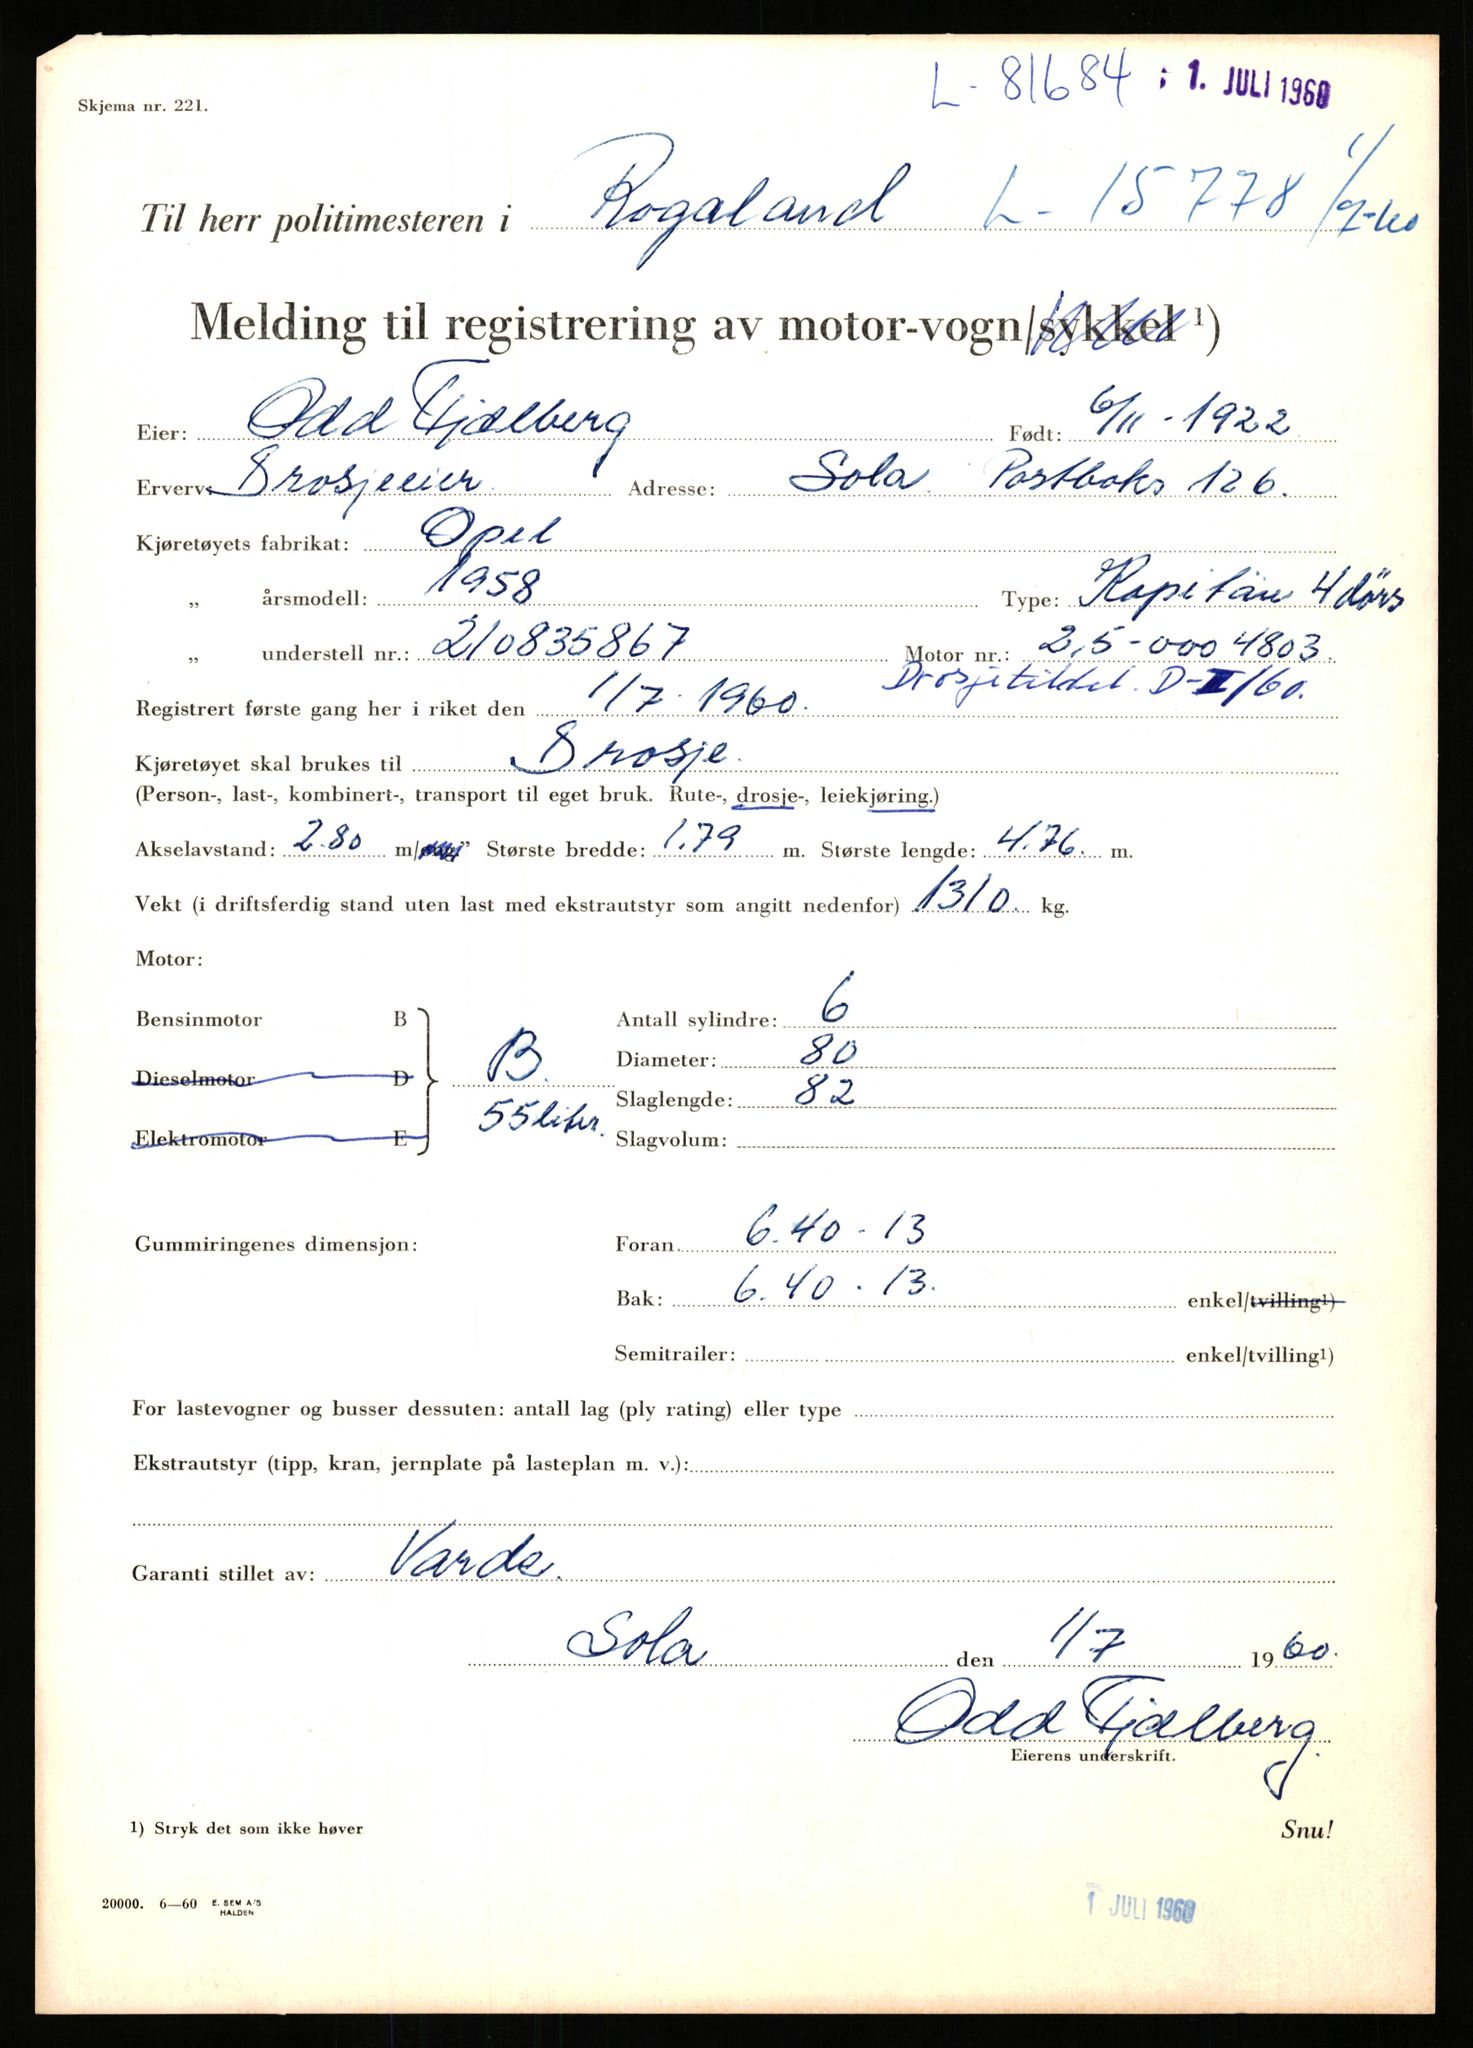 L-81684 1. JULI 1960
Skjema nr. 221.
Til herr politimesteren i Rogaland L-15778 1/7-60
Melding til registrering av motor-vogn/sykkel 1)
Eier: Odd Fjælberg Født: 6/11-1922
Erverv: Drosjeeier. Adresse: Sola. Postboks 126.
Kjøretøyets fabrikat: Opel
„ årsmodell: 1958 Type: Kapitän 4 dörs
„ understell nr.: 210835867 Motor nr.: 2,5-0004803.
Drosjetildel. D-II/60.
Registrert første gang her i riket den 1/7-1960.
Kjøretøyet skal brukes til Drosje.
(Person-, last-, kombinert-, transport til eget bruk. Rute-, drosje-, leiekjøring.)
Akselavstand: 2.80 m/ Største bredde: 1.79 m. Største lengde: 4.76. m.
Vekt (i driftsferdig stand uten last med ekstrautstyr som angitt nedenfor) 1310. kg.
Motor:
Bensinmotor B Antall sylindre: 6
B. Diameter: 80
Dieselmotor D
55 liter. Slaglengde: 82
Elektromotor E Slagvolum:
Gummiringenes dimensjon: Foran 6.40-13
Bak: 6.40-13. enkel/tvilling1)
Semitrailer: enkel/tvilling1)
For lastevogner og busser dessuten: antall lag (ply rating) eller type
Ekstrautstyr (tipp, kran, jernplate på lasteplan m. v.):
Garanti stillet av: Varde.
Sola den 1/7 1960.
Odd Fjælberg.
Eierens underskrift.
1) Stryk det som ikke høver Snu!
20000. 6—60 E. SEM A/S
HALDEN
1 JULI 1960